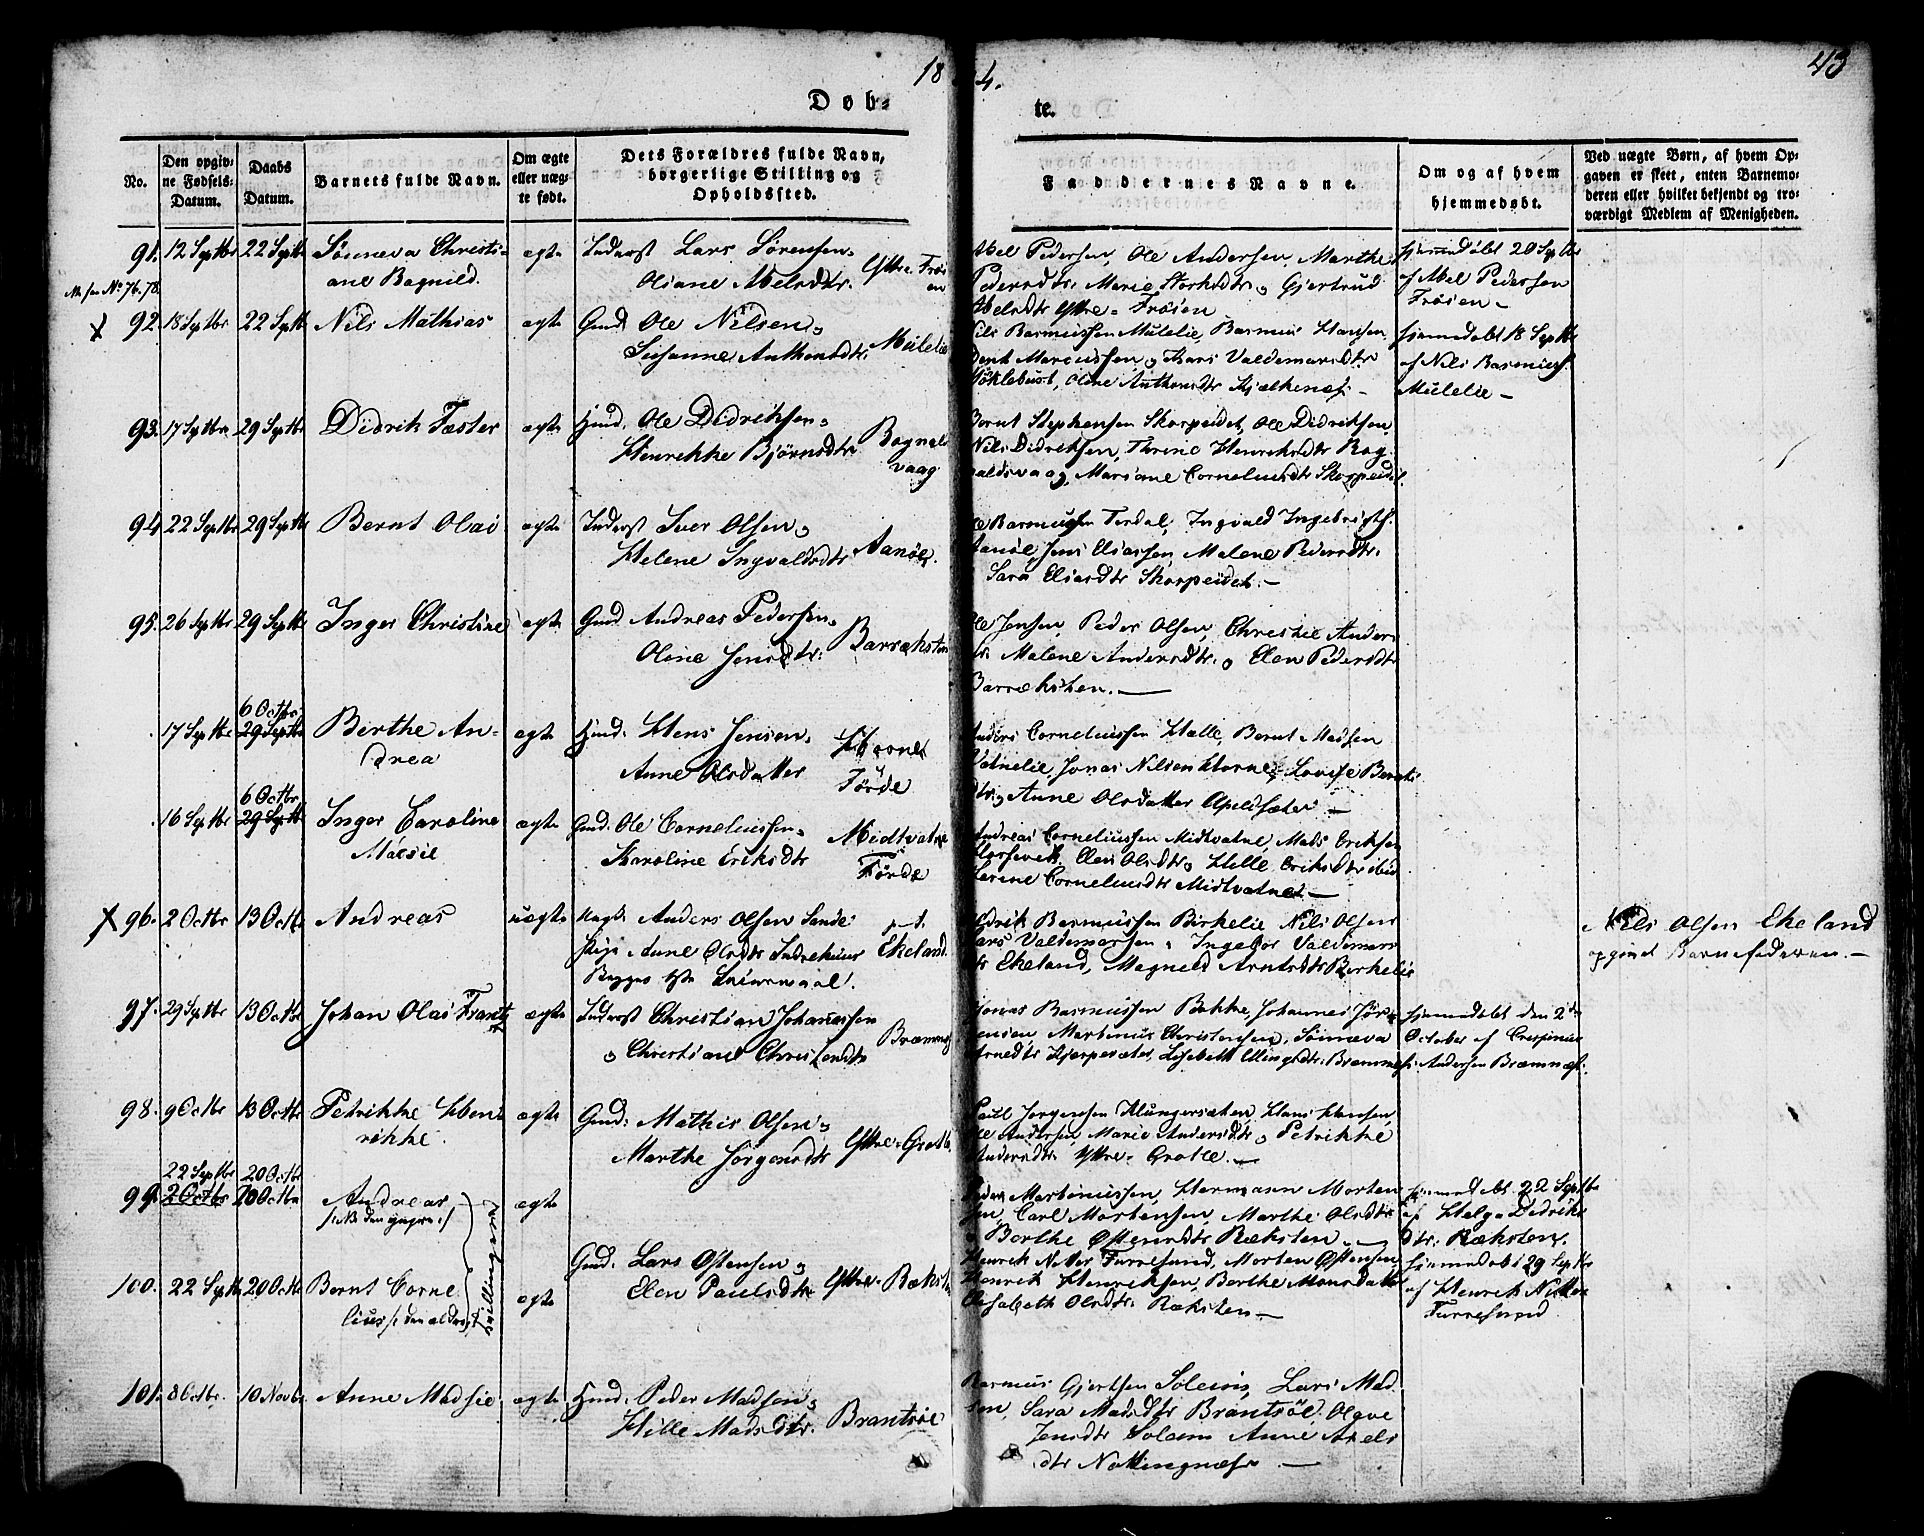 18
4.
43
Døb-
te.
No.
Den opgiv-
ne Fødsels-
Datum.
Daabs
Datum.
Barnets fulde Navn.
Om ægte
eller uæg-
te født.
Dets Forældres fulde Navn,
borgerlige Stilling og
Opholdssted.
Faddernes Navne.
Om og af hvem
hjemmedøbt.
Ved uægte Børn, af hvem Op-
gaven er skeet, enten Barnemo-
deren eller hvilket bekjendt og tro-
værdigt Medlem af Menigheden.
91. 12 Septbr 22 Septbr Sönneva Christi-
ane Bagnild.
ægte Inderst Lars Sörensen
Oliane Abelsdtr. Yttre-Fröi
en
Abel Pedersen, Ole Andersen, Marthe
Pedersdtr. Marie Gjertrud
Abelsdtr Yttre-Fröien
hjemmedöbt 20 Septbr
af Abel Pedersen
Fröien-
No 76.78.
92. 18 Septbr 22 Septbr Nils Mathias ægte Gmd. Ole Nilsen
Susanne Anthonsdtr. Mulelie
Nils Rasmussen Mulelie, Rasmus Hansen
Marcussen Valdemarsdtr
Myklebust, Oline Anthonsdtr
hjemmedöbt 18 Septbr
af Nils Rasmuss.
Mulelie-
93. 17 Septbr 29 Septbr Didrik Tæster ægte Hmd. Ole Didriksen
Henrikke Björnsdtr Rognald
vaag
Bernt Stephensen Skorpeidet, Ole Didriksen
Nils Didriksen, Thrine Henriksdtr Rog
valdsvaag, Mariane Corneliusdtr Skorpeidet.
94 22 Septbr 29 Septbr Bernt Olai ægte Inderst Iver Olsen
Helene Ingvaldsdtr Aanöe.
Ole Rasmussen Terdal, Ingvald Ingebrigts.
Aanöe, Jens Eliassen, Malene Pedersdtr.
Sara Eliasdtr Skorpeidet.-
95. 26 Septbr 29 Septbr Inger Christine ægte Gmd Andreas Pedersen
Oline Jensdtr: Barræksten
Ole Jensen, Peder Olsen, Christie Anders
dtr. Malene Andersdtr. Elen Pedersdtr
Barrækston.-
6 Octbr
17 Septbr 29 Septbr Birthe An-
drea
ægte Hmd. Hens Jensen
Anne Olsdatter Horne
Förde
Anders Corneliussen Halle, Bernt Madsen
Vatnelie, Jonas Nilsen Horne, Lovise Bernts
dtr. Anne Olsdatter Apelsæter-
6 Octbr
16 Septbr 29 Septbr Inger Caroline
Marie
ægte Gmd. Ole Corneliussen
Karoline Eriksdtr Midtvatne
Förde
Andreas Corneliussen Midtvatne, Mads Eriksen
Elen Olsdtr. Hille Eriksdtr ibid
Serine Corneliusdtr Midtvatne-
96. 2 Octbr 13 Octbr Andreas uægte Ungk. Anders Olsen Sande
Pige Anne Olsdtr
Ekeland.
Didrik Rasmussen Birkelie Nils Olsen
Lars Valdemarsen Ingebor Valdemars
dtr Ekeland, Magnild Arntsdtr Birkelie
Nils Olsen Ekeland
opgivet Barnefaderen.-
97. 29 Septbr 13 Octbr Johan Olai Frantz ægte Inderst Christian Johannessen
Christiane Christensdtr Bræmnes
Jonas Rasmussen Bakke, Johannes Jör
gensen Martinus Christensen, Sönneva
Arnedtr Lisebett Ellingsdtr. Bræmnes
hjemmedöbt den 2
October af Crispinus
Andersen Bræmnæs.
98. 9 Octbr 13 Octbr Petrikke Hen
rikke.
ægte Gmd. Mathis Olsen
Marthe Jörgensdtr Yttre-Grotle
Poul Jörgensen Klungersæten, Hans Hansen,
Ole Andersen, Marie Andersdtr. Petrikke
Andersdtr Yttre-Grotle.-
22 Septbr 20 Octbr
99. 2 Octbr 20 Octbr Andreas
(: NB den yngre:)
ægte
Tvillinger
Peder Martinussen, Hermann Morten
sen, Carl Mortensen, Marthe Olsdtr
Berthe Östensdtr Ræksten.-
hjemmedöbt 22 Septbr
af Helga Didriks
dtr. Ræksten.
100. 22 Septbr 20 Octbr Bernt Corne
lius (: den ældre:)
ægte Gmd. Lars Östensen
Elen Paulsdtr Yttre-Ræksten
Henrik Nitter Furresund, Morten Östensen
Henrik Henriksen, Berthe Monsdatter
Elisabeth Olsdtr. Ræksten-
hjemmedöbt 29 Septbr
af Henrik Nitter
Furresund
101. 8 Octbr. 10 Novbr Anne Madsie ægte Hmd. Peder Madsen
Hille Madsdtr. Brantsöe
Rasmus Gjertsen Soleim, Lars Mad
sen, Sara Madsdtr Brantsöe, Olave
Jensdtr Soleim Anne Axels
dtr Nottingnæs-